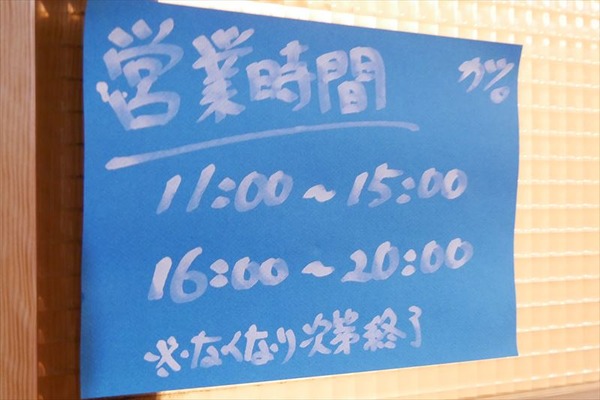 営業時間
カツ。
11:00~15:00
16:00~20:00
※・なくなり次第終了